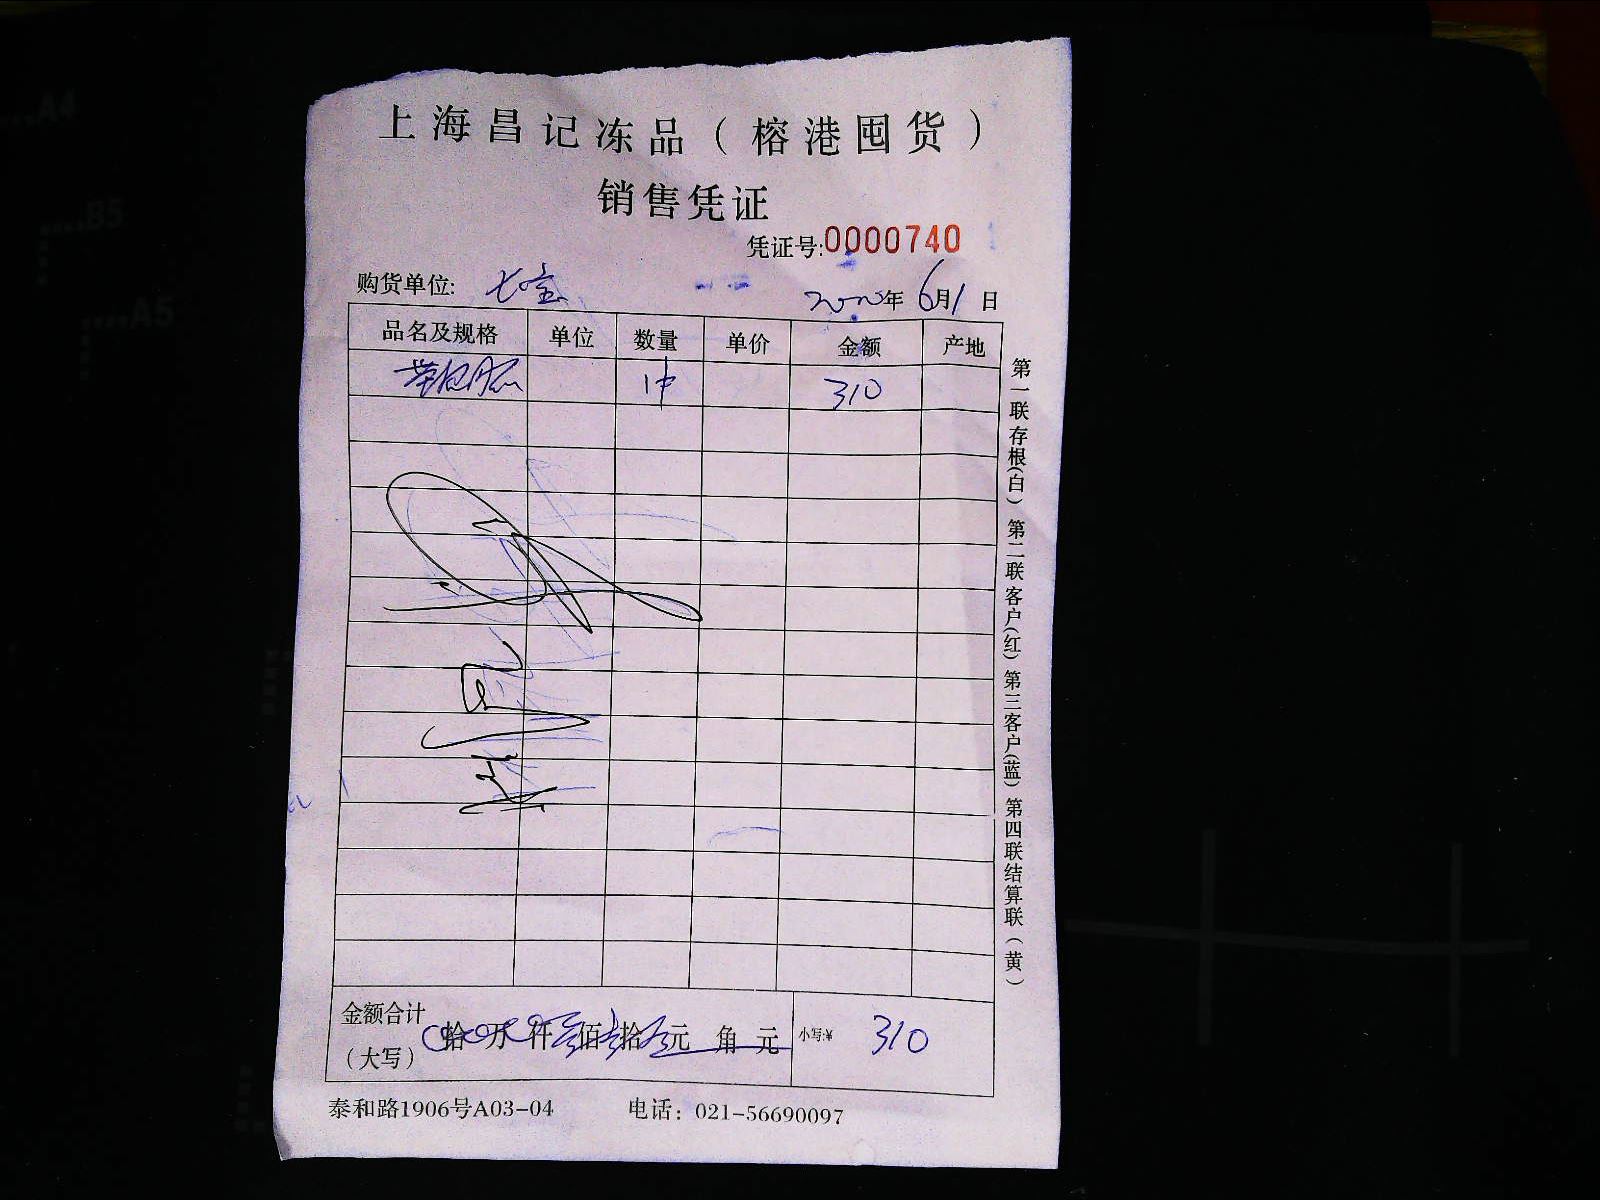 上海昌记冻品（榕港囤货）
销售凭证
凭证号:0000740
购货单位: 七宝
2020年 6月1日
品名及规格 单位 数量 单价 金额 产地
1件 310
金额合计（大写） 拾 万 仟 佰 拾 元 角 元 小写:¥ 310
泰和路1906号A03-04 电话：021-56690097
第一联存根(白) 第二联客户(红) 第三客户(蓝) 第四联结算联(黄)
A4
B5
A5